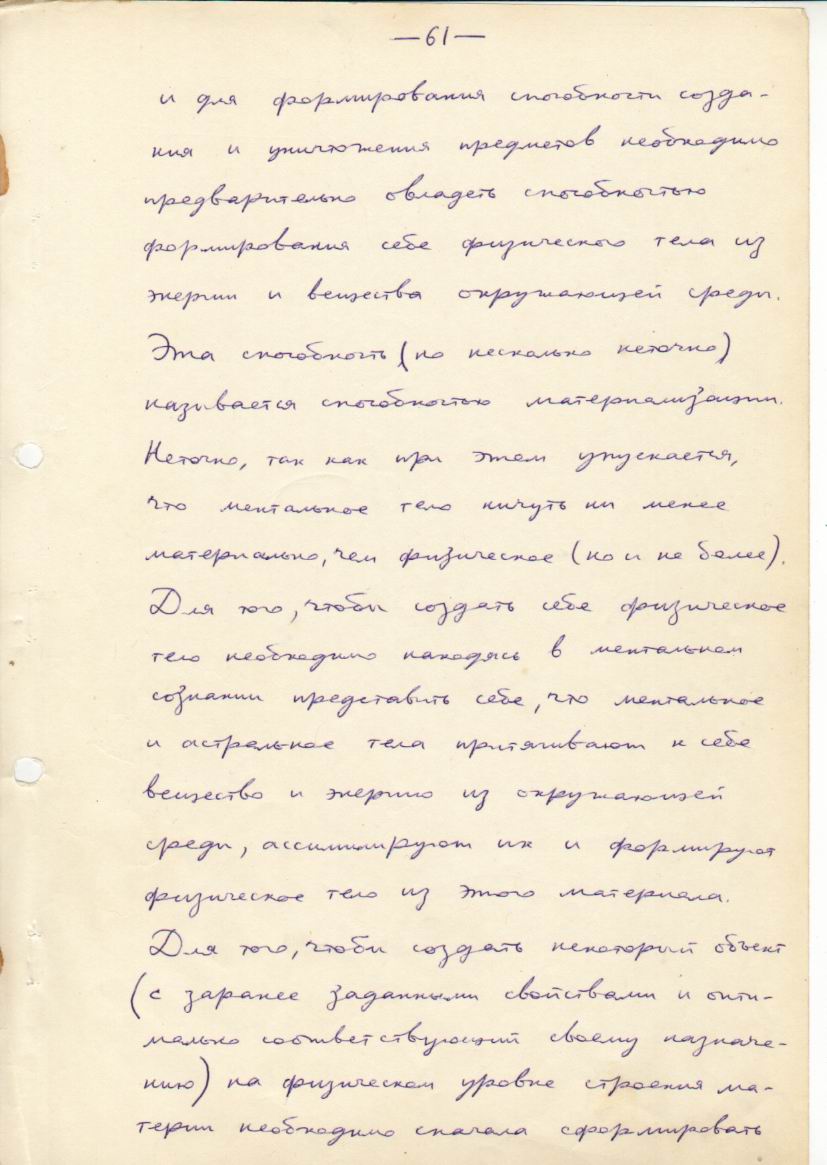 —61—
и для формирования способности созда-
ния и уничтожения предметов необходимо
предварительно овладеть способностью
формирования себе физического тела из
энергии и вещества окружающей среды.
Эта способность (но несколько неточно)
называется способностью материализации.
Неточно, так как при этом упускается,
что ментальное тело ничуть ни менее
материально, чем физическое (но и не более).
Для того, чтобы создать себе физическое
тело необходимо находясь в ментальном
сознании представить себе, что ментальное
и астральное тела притягивают к себе
вещество и энергию из окружающей
среды, ассимилируют их и формируют
физическое тело из этого материала.
Для того, чтобы создать некоторый объект
(с заранее заданными свойствами и опти-
мально соответствующий своему назначе-
нию) на физическом уровне строения ма-
терии необходимо сначала сформировать